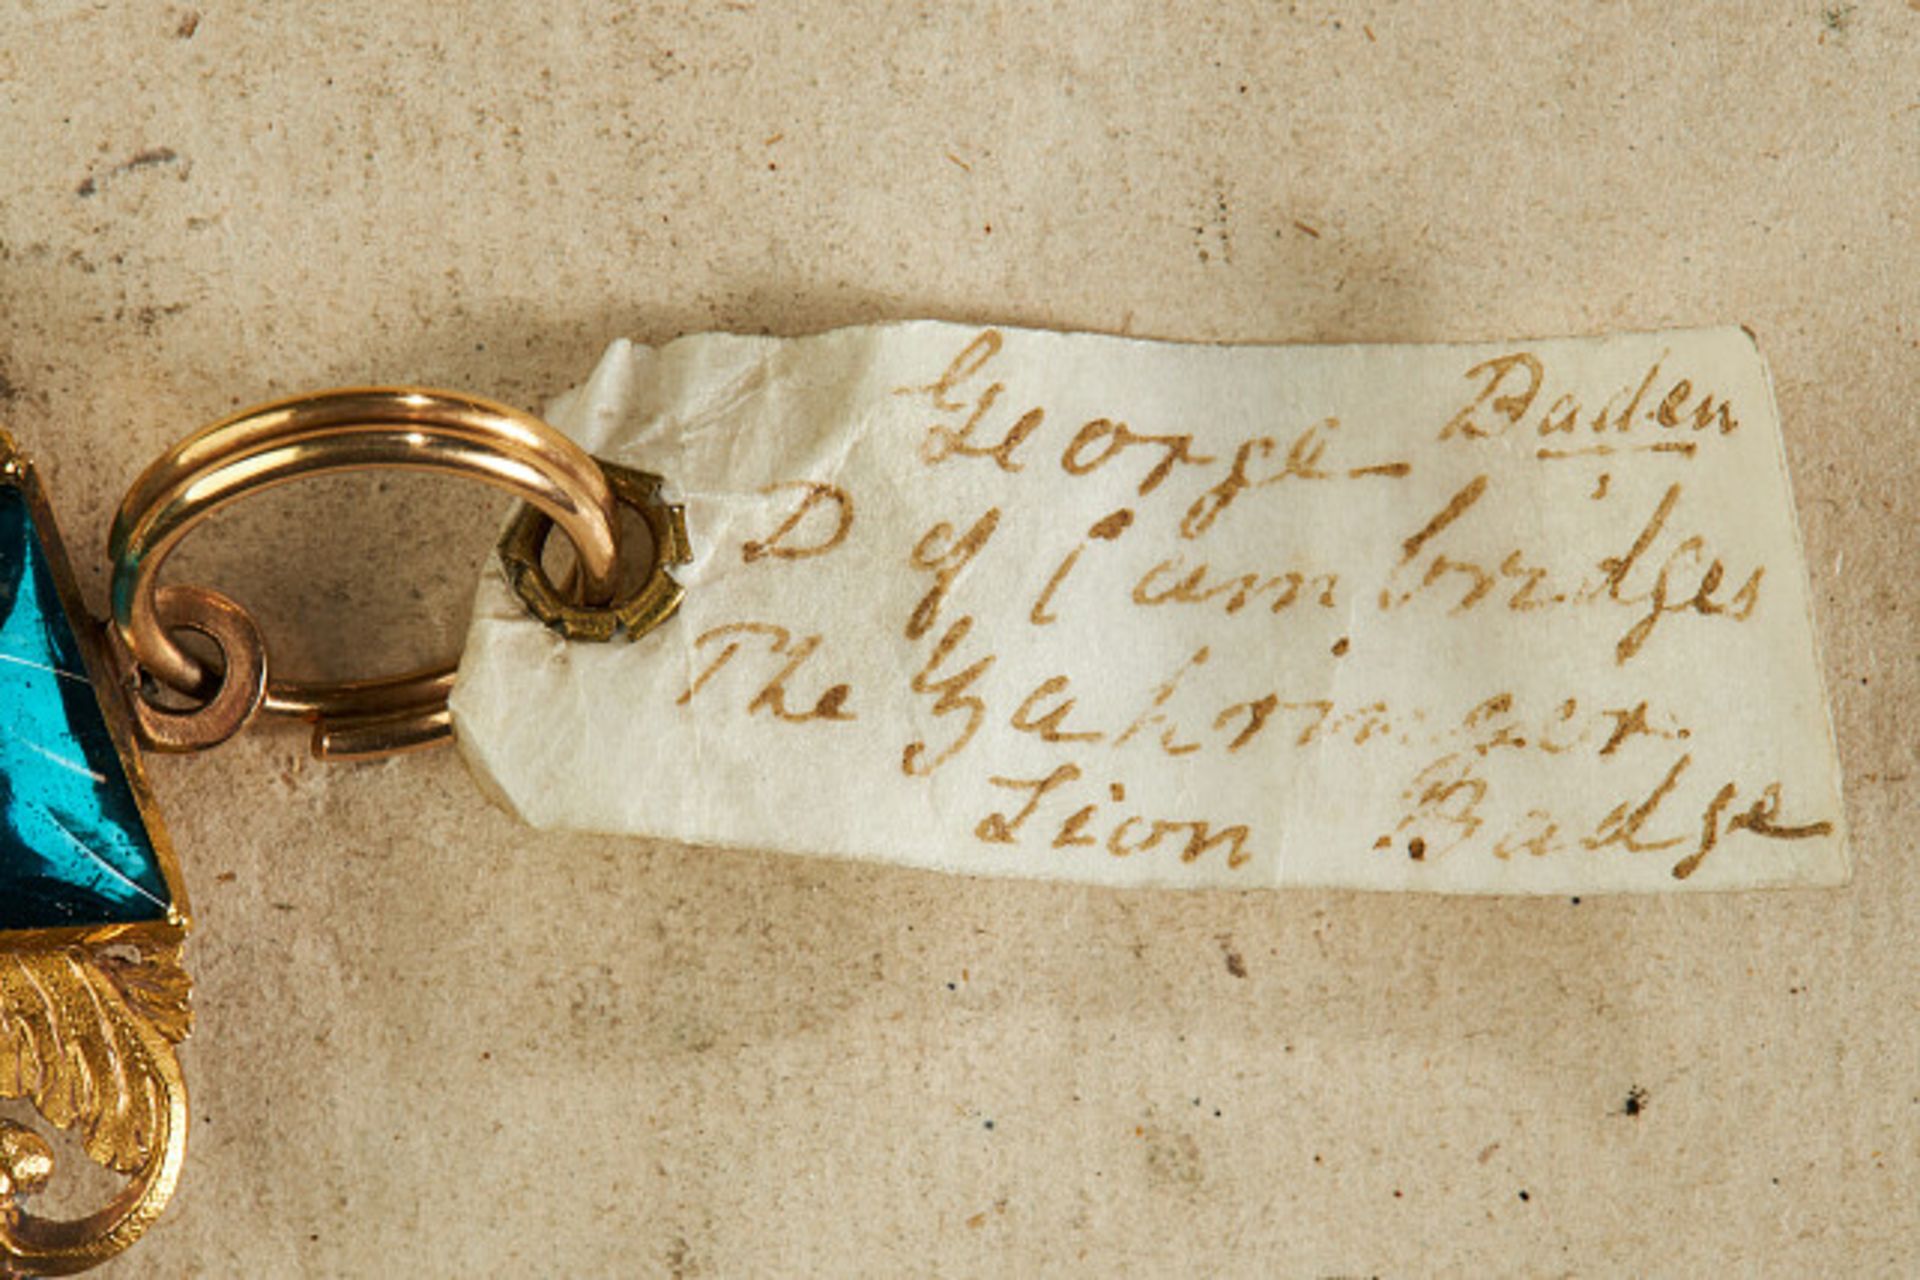 George Baden
D of Cambridges
The Zahringer
Lion Badge